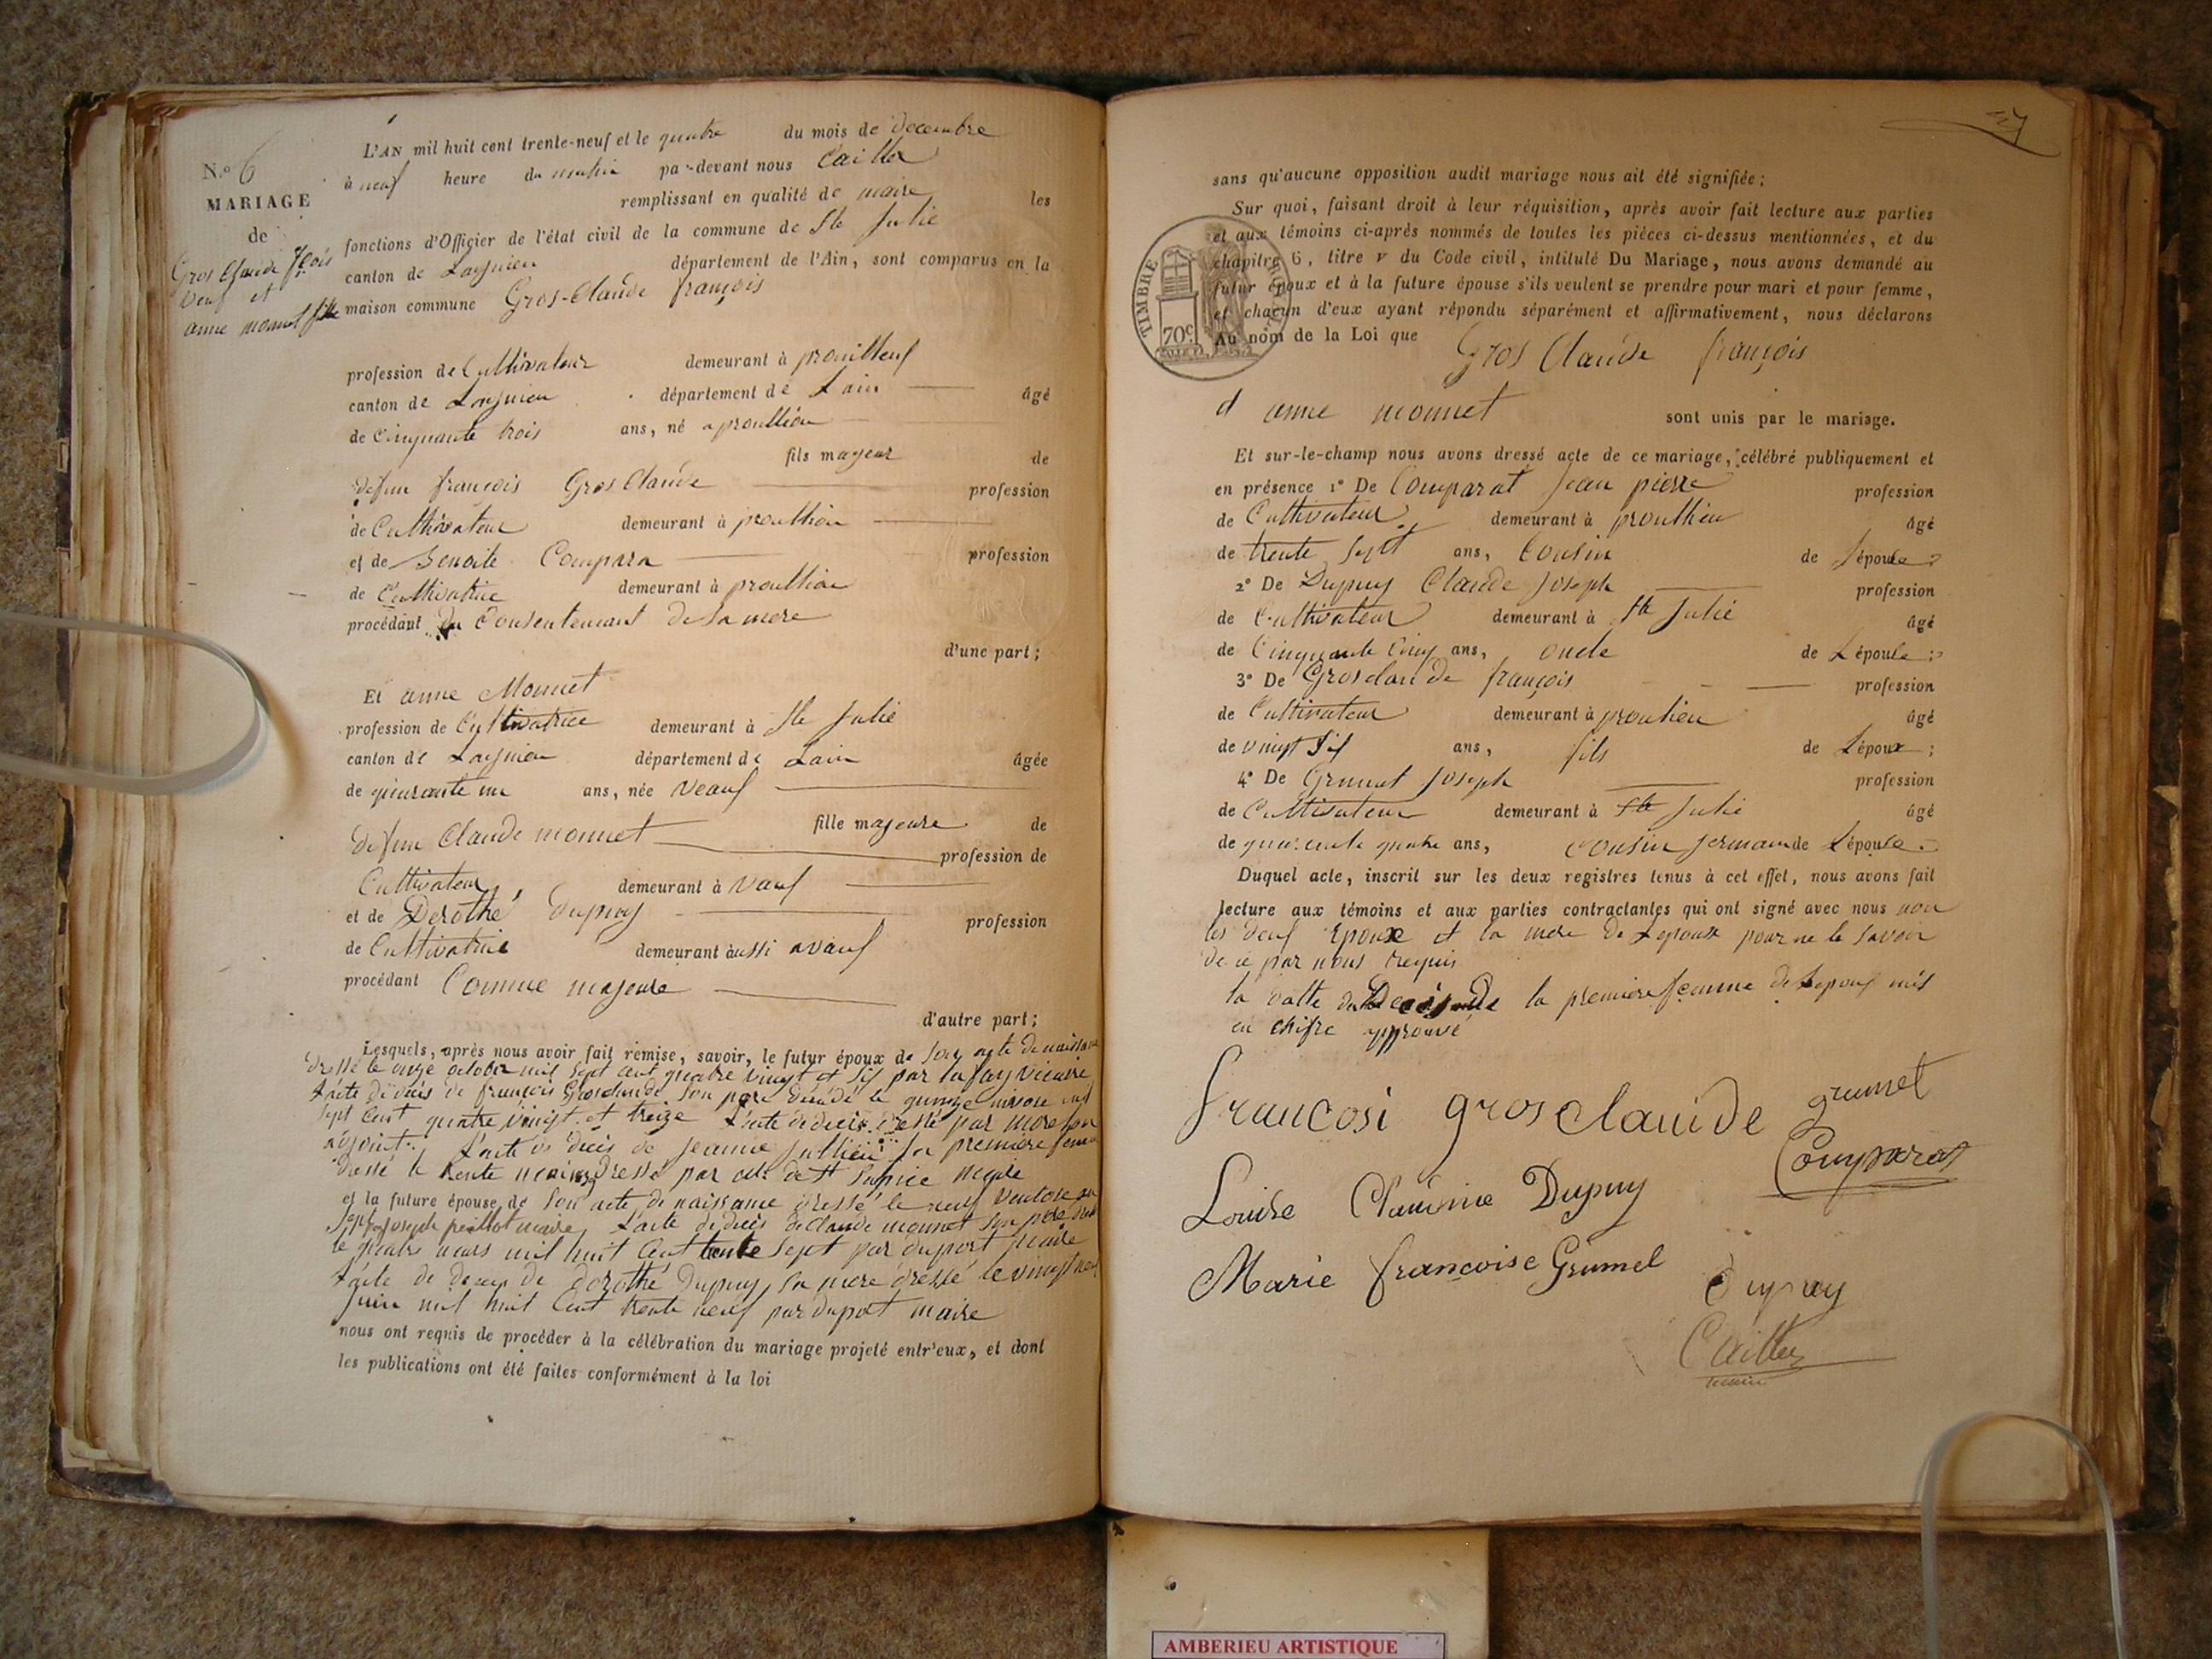 N.º 6
MARIAGE
de
Gros Claude fçois
veuf et
anne monnet fille
L'AN mil huit cent trente-neuf et le quatre du mois de decembre
à neuf heure du matin par-devant nous Cailler
remplissant en qualité de maire les
fonctions d'Officier de l'état civil de la commune de Ste Julie
canton de Lagnieu département de l'Ain, sont comparus en la
maison commune Gros-Claude françois
profession de Cultivateur demeurant à
canton de Lagnieu département de Lain âgé
de cinquante trois ans, né a proullieu
fils majeur de
defun françois Gros Claude profession
de Cultivateur demeurant à proullieu
et de Benoite Compara profession
de Cultivatrice demeurant à proullieu
procédant du Consentement de sa mere
d'une part ;
Et anne Monnet
profession de Cultivatrice demeurant à Ste Julie
canton de Lagnieu département de Lain âgée
de quarante un ans, née Veauf
fille majeure de
defun Claude monnet profession de
Cultivateur demeurant à Vauf
et de Derothé Dupuy profession
de Cultivatrice demeurant àussi avauf
procédant Comme majeure
d'autre part ;
Lesquels, après nous avoir fait remise, savoir, le futur époux de son acte de naissance
dressé le onze octobre mil sept cent quatre vingt et sif par vicaire
L'acte de décès de françois Grosclaude son pere décédé le quinze nivose mil
sept cent quatre vingt et treize L'acte de décès dressé par
adjoint. L'acte de décès de jeanne jullien sa premiere femme
dressé le trente dressé par de St Supice maire
et la future épouse de son acte de naissance dressé le neuf ventose an
sept par joseph peillot maire L'acte de décès de Claude monnet son père
le quatre mars mil huit Cent trente sept par duport maire
L'acte de deces de dorothé Dupuy sa mere dressé le vingt neuf
juin mil huit Cent trente neuf par duport maire
nous ont requis de procéder à la célébration du mariage projeté entr'eux, et dont
les publications ont été faites conformément à la loi
sans qu'aucune opposition audit mariage nous ait été signifiée ;
Sur quoi, faisant droit à leur réquisition, après avoir fait lecture aux parties
et aux témoins ci-après nommés de toutes les pièces ci-dessus mentionnées, et du
chapitre 6, titre v du Code civil, intitulé Du Mariage, nous avons demandé au
futur époux et à la future épouse s'ils veulent se prendre pour mari et pour femme,
et chacun d'eux ayant répondu séparément et affirmativement, nous déclarons
Au nom de la Loi que Gros Claude françois
TIMBRE ROYAL
70c.
et anne monnet sont unis par le mariage.
Et sur-le-champ nous avons dressé acte de ce mariage, célébré publiquement et
en présence 1º De Comparat Jean pierre profession
de Cultivateur demeurant à proullieu âgé
de trente sept ans, Cousin de Lépouse
2º De Dupuy Claude Joseph profession
de Cultivateur demeurant à Ste Julie âgé
de Cinquante Cinq ans, oncle de Lépouse ;
3º De Grosclaude françois profession
de Cultivateur demeurant à proulieu âgé
de vingt sif ans, fils de Lépoux ;
4º De Grumet Joseph profession
de Cultivateur demeurant à Ste Julie âgé
de quarente quatre ans, cousin germain de Lépouse.
Duquel acte, inscrit sur les deux registres tenus à cet effet, nous avons fait
lecture aux témoins et aux parties contractantes qui ont signé avec nous non
les deuf Epoux et la mere de Lepoux pour ne le savoir
de ce par nous requis
la datte du Deces de la premiere femme de Lepouf mis
en chifre approuvé
francosi gros claude grumet
Comparat
Louise Claudine Dupuy
Marie françoise Grumel Dupuy
Cailler
maire
AMBERIEU ARTISTIQUE